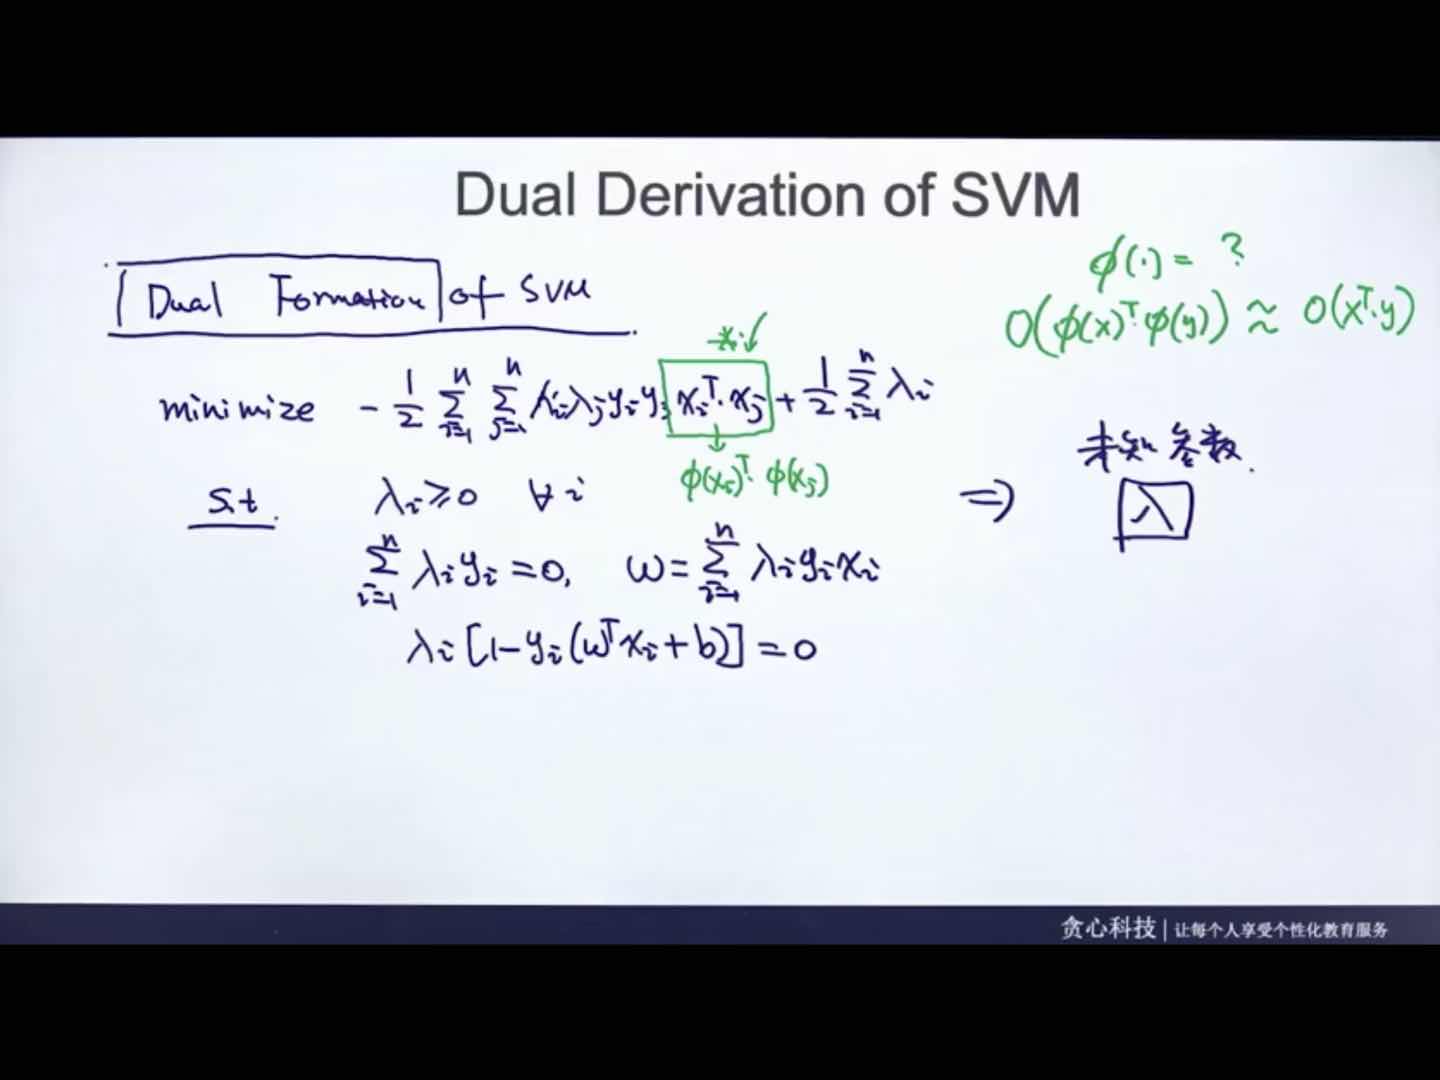 Dual Derivation of SVM
Dual Formation of SVM
ϕ(·) = ?
O(ϕ(x)ᵀ·ϕ(y)) ≈ O(xᵀ·y)
*:✓
minimize -1/2 ∑ⁿᵢ₌₁ ∑ⁿⱼ₌₁ λᵢλⱼyᵢyⱼ xᵢᵀ·xⱼ + 1/2 ∑ⁿᵢ₌₁ λᵢ
↓
ϕ(xᵢ)ᵀ·ϕ(xⱼ)
s.t. λᵢ≥0 ∀i
⇒ 未知参数.
λ
∑ⁿᵢ₌₁ λᵢyᵢ=0, ω=∑ⁿᵢ₌₁ λᵢyᵢxᵢ
λᵢ[1-yᵢ(ωᵀxᵢ+b)]=0
贪心科技|让每个人享受个性化教育服务